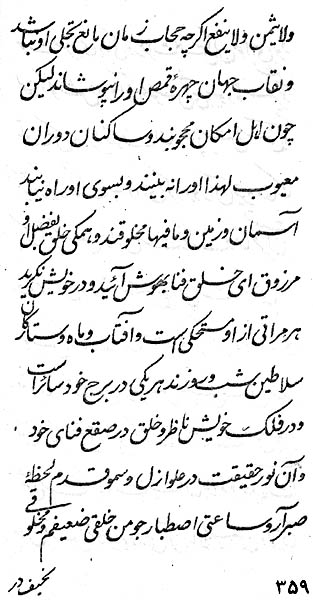 ولایثمن ولاینفع اگرچه حجاب زمان مانع تجلی او نباشد
و نقاب جهان چهرهٔ قمص او را نپوشاند لیکن
چون اهل امکان محجوبند و ساکنان دوران
معیوب لهذا او را نه بینند و بسوی او راه نیابند
آسمان و زمین و مافیها مخلوقند و همگی خلق بفضل او
مرزوق ای خلق فنا بهوش آئید و در خویش نگرید
هر مراتی از او مستحکی است و آفتاب و ماه و ستارگان
سلاطین شب و روزند هر یکی در برج خود سائر است
و در فلک خویش ناظر و خلق در صقع فنای خود
و آن نور حقیقت در علو ازل و سمو قدم لحظهٔ
صبر آر و ساعتی اصطبار جو من خلقی ضعیفم و مخلوقی
نحیف در
۳۵۹